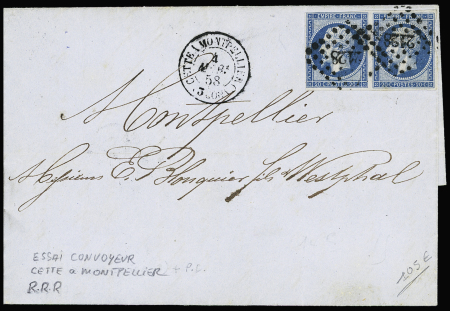 CETTE A MONTPELLIER
4
58
EMPIRE FRANC
20 C POSTES 20 C
20 C POSTES 20 C
Montpellier
Messieurs E. Blouquier fils Westphal
ESSAI CONVOYEUR
CETTE a MONTPELLIER + P.L.
R.R.R